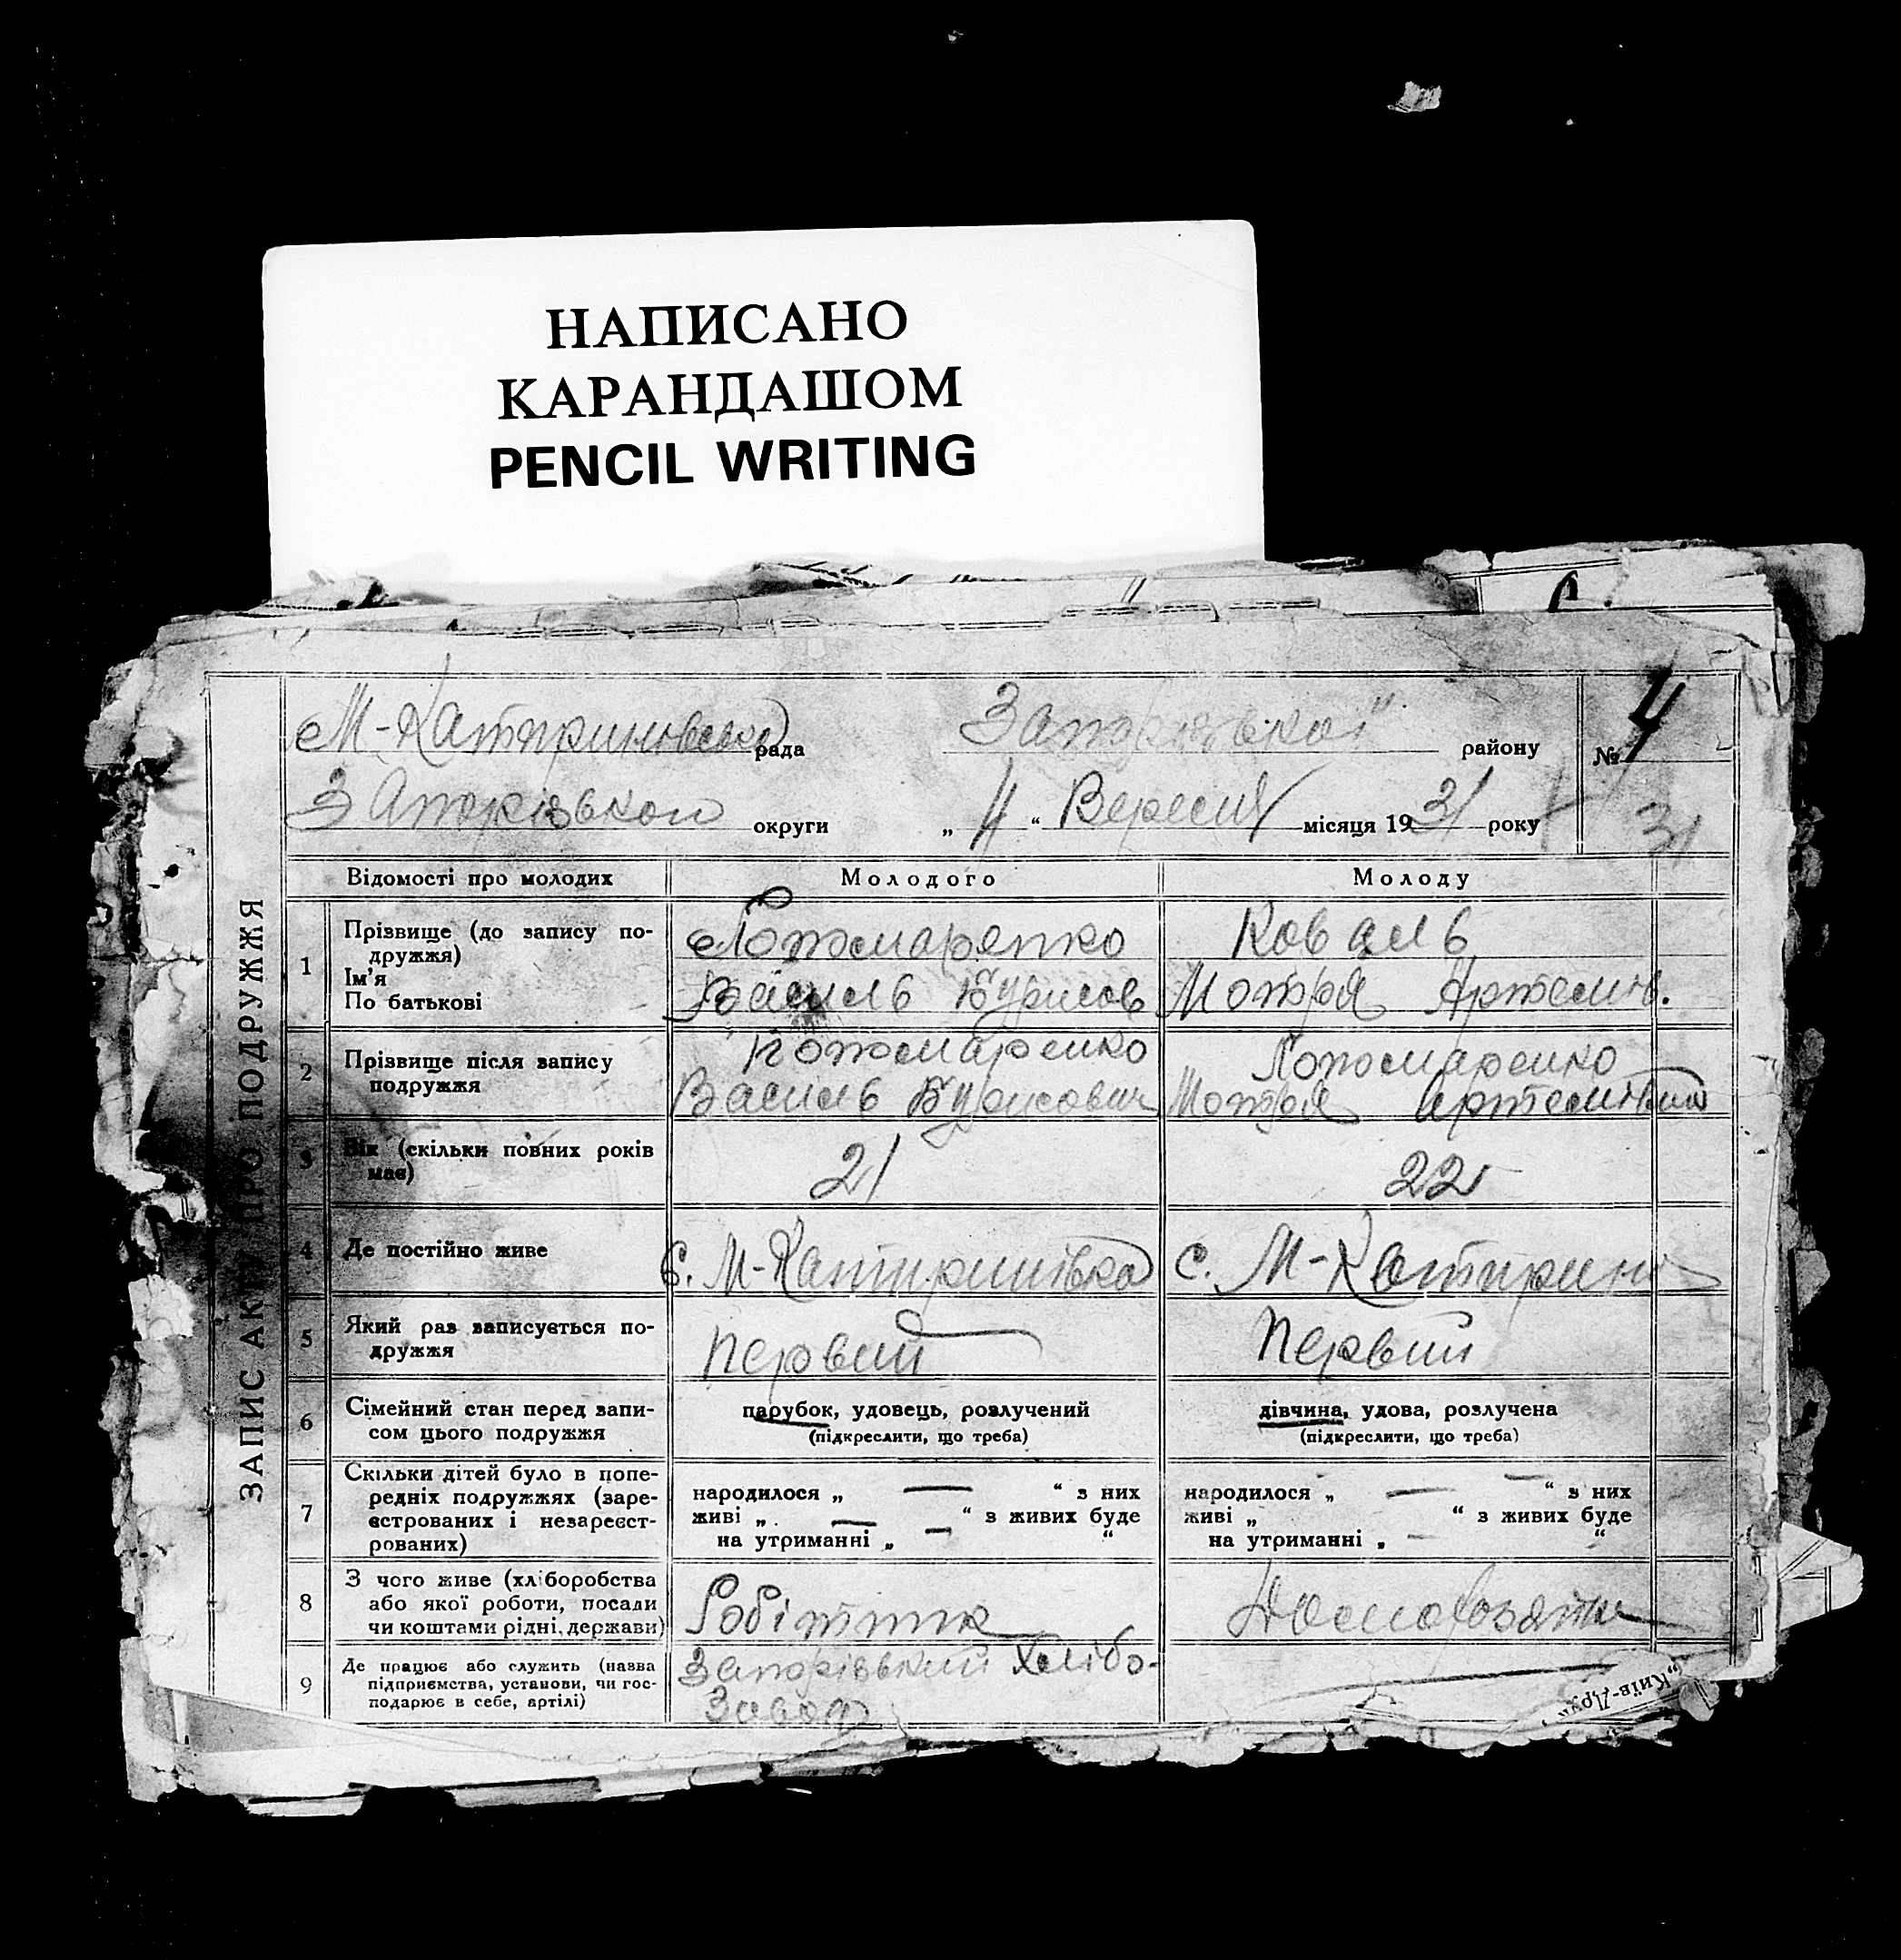 НАПИСАНО
КАРАНДАШОМ
PENCIL WRITING
М-Катириновська рада Запорізької району № 4
Запорізької округи „ 4 “ Вересня місяця 1931 року 31
ЗАПИС АКТУ ПРО ПОДРУЖЖЯ
Відомості про молодих Молодого Молоду
1 Прізвище (до запису подружжя)
Ім'я
По батькові
Пономаренко
Василь Бурисов
Коваль
Мотря Артемів.
2 Прізвище після запису
подружжя
Пономаренко
Василь Бурисович
Пономаренко
Мотря
3 Вік (скільки повних років
має)
21 22
4 Де постійно живе с. М-Катиринівка с. М-Катирин
5 Який раз записується по-
дружжя
Первий Первий
6 Сімейний стан перед запи-
сом цього подружжя
парубок, удовець, розлучений
(підкреслити, що треба)
дівчина, удова, розлучена
(підкреслити, що треба)
7 Скільки дітей було в попе-
редніх подружжях (заре-
єстрованих і незареєст-
рованих)
народилося „ — “ з них
живі „ — “ з живих буде
на утриманні „ — “
народилося „ — “ з них
живі „ “ з живих буде
на утриманні „ — “
8 З чого живе (хліборобства
або якої роботи, посади
чи коштами рідні, держави)
Робітник
9 Де працює або служить (назва
підприємства, установи, чи гос-
подарює в себе, артілі)
Запорізький Хлібо-
Завод
„Київ-Дру